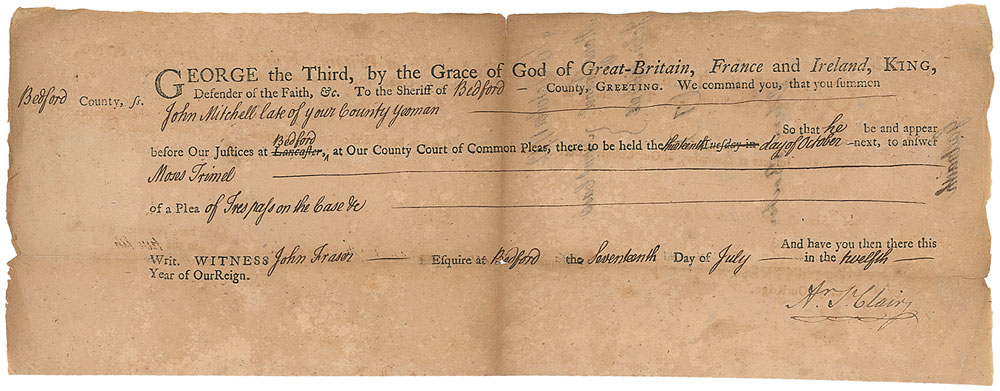 GEORGE the Third, by the Grace of God of Great-Britain, France and Ireland, KING,
Bedford County, ss. Defender of the Faith, &c. To the Sheriff of Bedford County, GREETING. We command you, that you summon
John Mitchell late of your County Yeoman
So that he be and appear
before Our Justices at Lancaster, Bedford at Our County Court of Common Pleas, there to be held the Tuesday in day of October next, to answer
Moses Trimel
of a Plea of Trespass on the Case &c
And have you then there this
Writ. WITNESS John Frasor Esquire at Bedford the Seventeenth Day of July in the twelfth
Year of Our Reign.
Ar. St. Clair